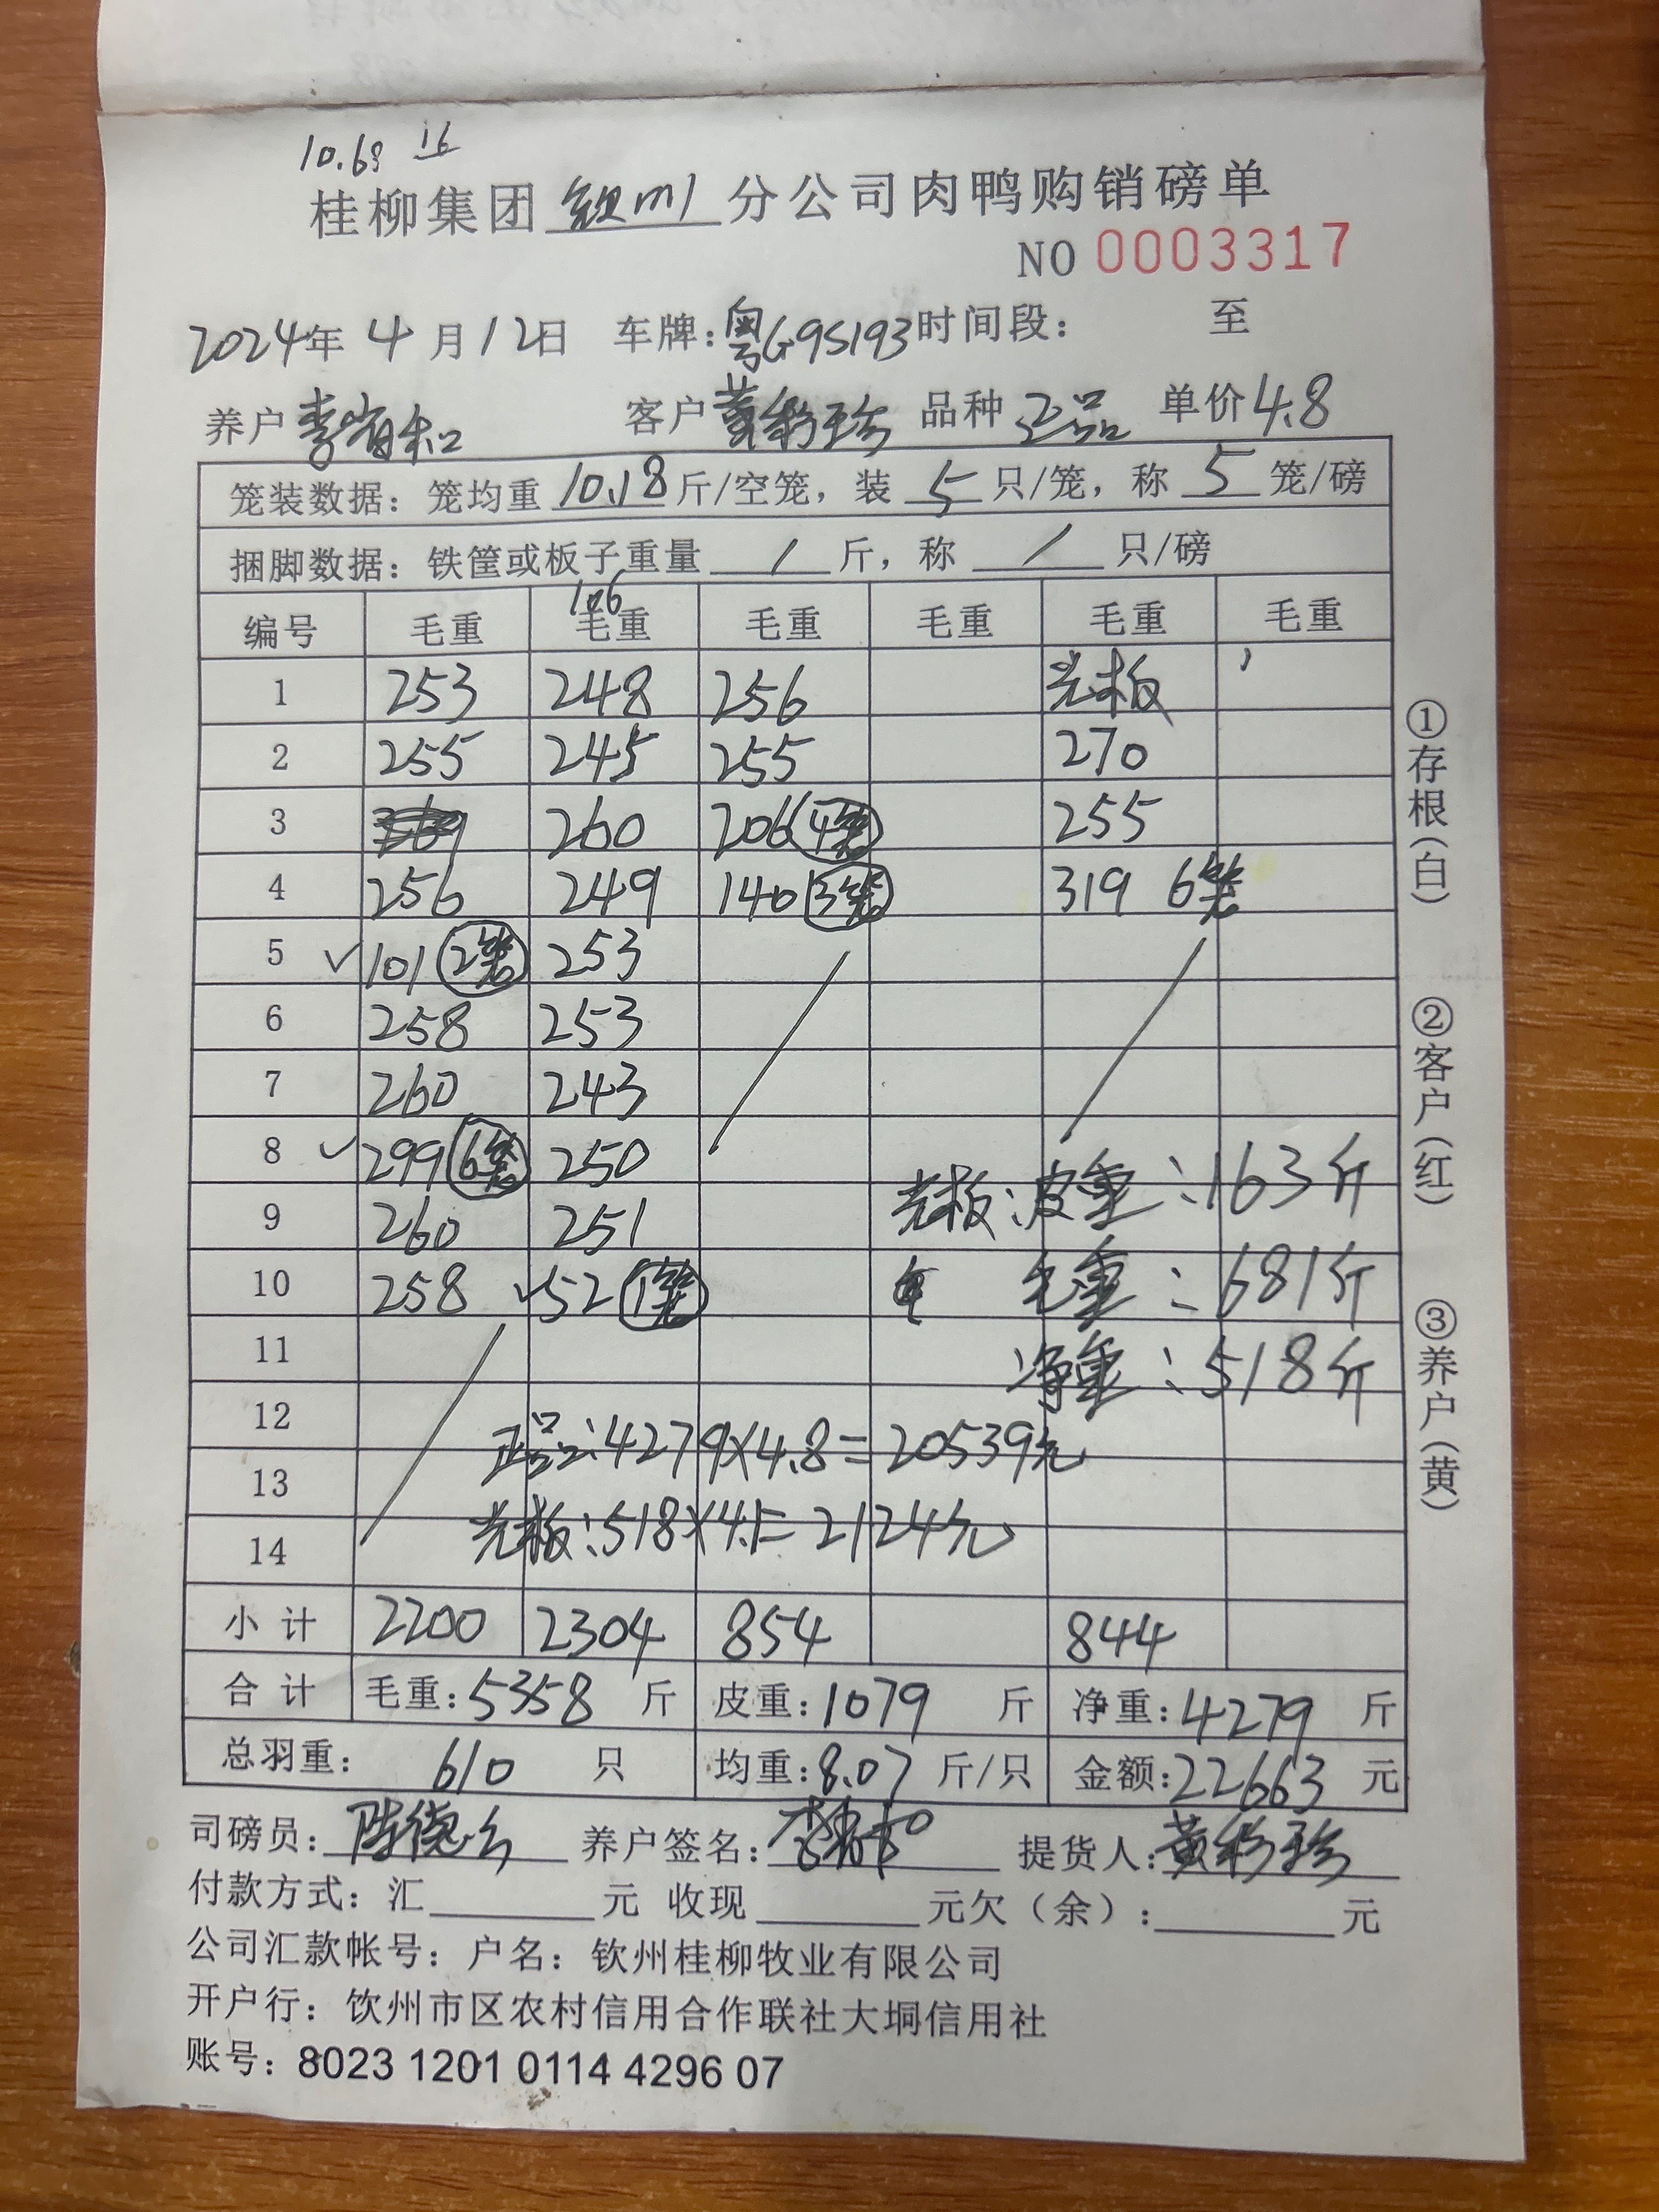 10.69 16
桂柳集团 钦州 分公司肉鸭购销磅单
NO 0003317
2024年 4 月 12日 车牌:粤G95193 时间段: 至
养户 李有和 客户 黄彩珍 品种 正品 单价 4.8
笼装数据: 笼均重 10.18 斤/空笼, 装 5 只/笼, 称 5 笼/磅
捆脚数据: 铁筐或板子重量 / 斤, 称 / 只/磅
106
编号 毛重 毛重 毛重 毛重 毛重 毛重
1 253 248 256 光板
2 255 245 255 270
3 260 206 4笼 255
4 256 249 140 3笼 319 6笼
5 ✓101 2笼 253
6 258 253
7 260 243
8 ✓299 6笼 250
光板:皮重:163斤
9 260 251
10 258 ✓52 1笼 毛重:681斤
11 净重:518斤
12 正品:4279×4.8=20539元
13
14 光板:518×4.1=2124元
小计 2200 2304 854 844
合计 毛重:5358 斤 皮重:1079 斤 净重:4279 斤
总羽重: 610 只 均重:8.07 斤/只 金额:22663 元
司磅员: 养户签名: 提货人:黄彩珍
付款方式: 汇 元 收现 元欠(余): 元
公司汇款帐号: 户名: 钦州桂柳牧业有限公司
开户行: 钦州市区农村信用合作联社大垌信用社
账号: 8023 1201 0114 4296 07
①存根(白)
②客户(红)
③养户(黄)